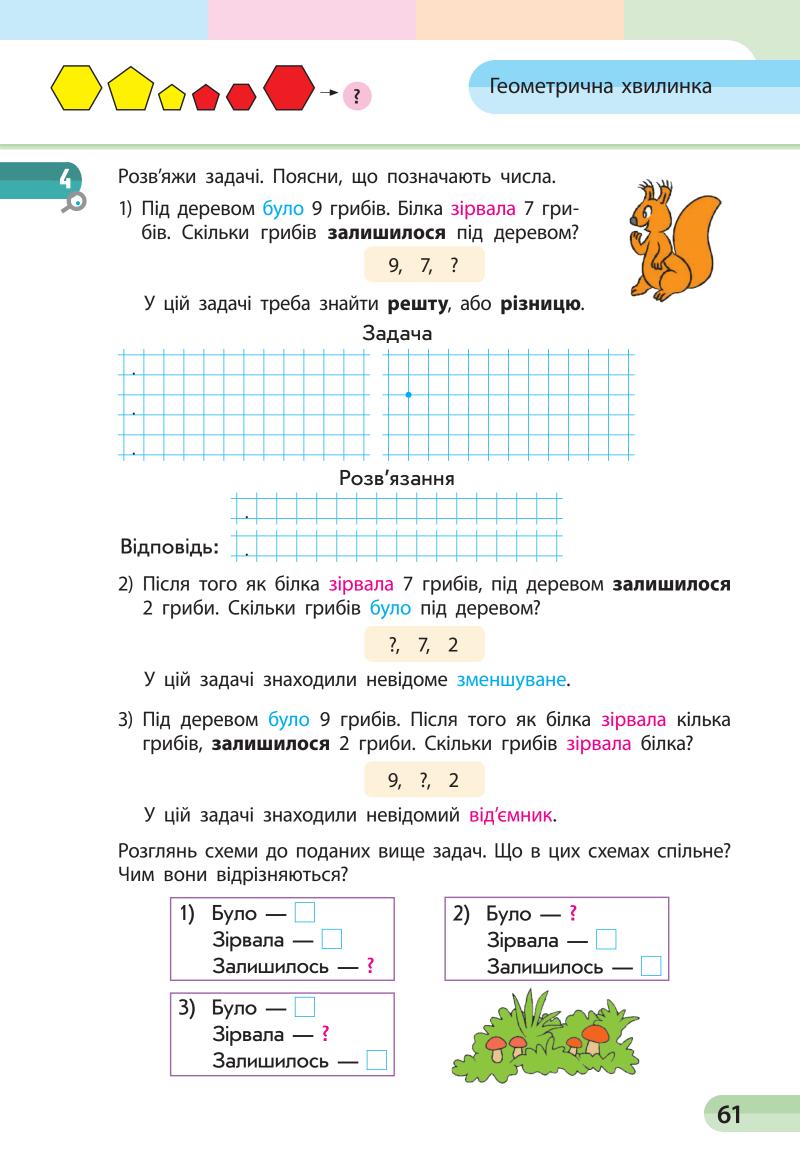 ?
Геометрична хвилинка
4
Розв’яжи задачі. Поясни, що позначають числа.
1) Під деревом було 9 грибів. Білка зірвала 7 гри-
бів. Скільки грибів залишилося під деревом?
9, 7, ?
У цій задачі треба знайти решту, або різницю.
Задача
Розв’язання
Відповідь:
2) Після того як білка зірвала 7 грибів, під деревом залишилося
2 гриби. Скільки грибів було під деревом?
?, 7, 2
У цій задачі знаходили невідоме зменшуване.
3) Під деревом було 9 грибів. Після того як білка зірвала кілька
грибів, залишилося 2 гриби. Скільки грибів зірвала білка?
9, ?, 2
У цій задачі знаходили невідомий від’ємник.
Розглянь схеми до поданих вище задач. Що в цих схемах спільне?
Чим вони відрізняються?
1) Було —
Зірвала —
Залишилось — ?
2) Було — ?
Зірвала —
Залишилось —
3) Було —
Зірвала — ?
Залишилось —
61